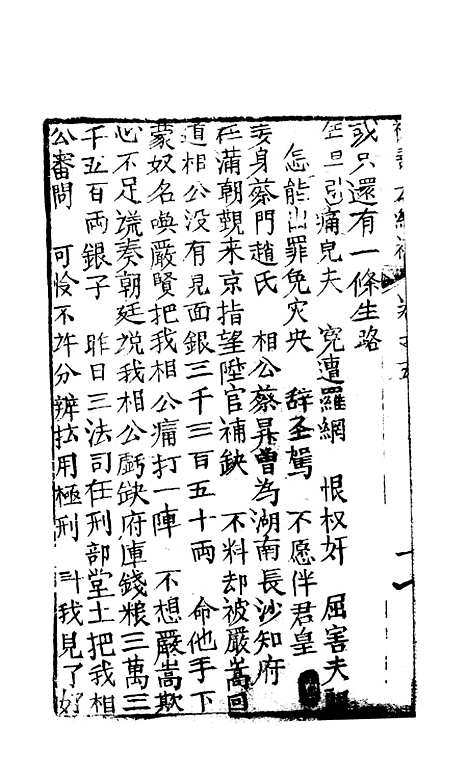 或只還有一條生路
旦 痛兒夫　冤遭羅網　恨权奸　屈害夫
怎能出罪免灾央　辞圣駕　不愿伴君皇
妾身蔡門趙氏　相公蔡昇曽為湖南長沙知府
任滿朝覲来京指望陞官補缺　不料却被嚴嵩回
道相公没有見面銀三千三百五十両　命他手下
蒙奴名喚嚴賢把我相公痛打一陣　不想嚴嵩欺
心不足謊奏朝廷説我相公虧缺府庫錢粮三萬三
千五百両銀子　昨日三法司在刑部堂土把我相
公審問　可怜不許分辨拡用極刑　我見了好